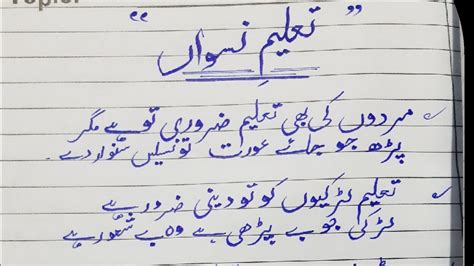 Topic:
" تعلیمِ نسواں "
مردوں کی بھی تعلیم ضروری تو ہے مگر
پڑھ جو جائے عورت تو نسلیں سنوار دے۔
تعلیم لڑکیوں کو تو دینی ضرور ہے
لڑکی جو بے پڑھی ہے وہ بے شعور ہے